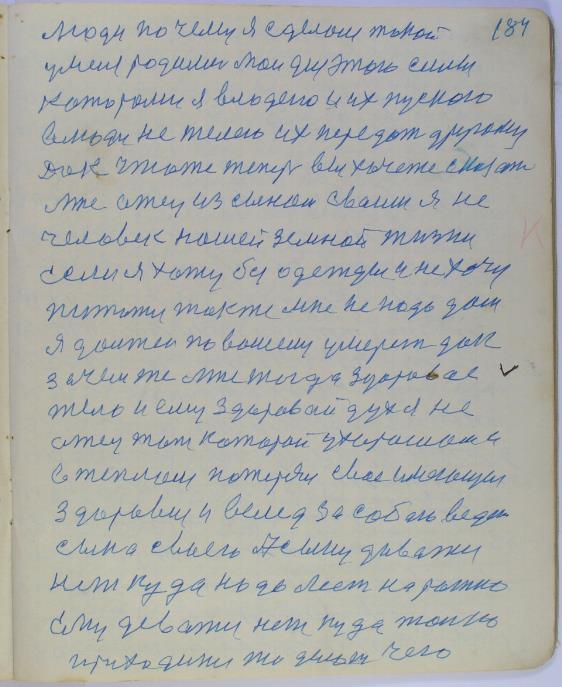 люди почему я сделал такой 184
умея родили мои для этого силы
которыми я владею и их пускаю
в люди не желею их передат другому
Дак что же теперь вы хочете сказать
мне отец из сыном сваим я не
человек нашей земной жизни
если я хожу без одежды и не хочу
также мне не надо дом
я должен по вашему умерет дак
зачем же мне тогда здоровае
тело и ему здоровай дух я не
отец тот которой ухорошом и
в теплом потерял свае имающее
здоровье и вслед за собою ведет
сына своего А сыну деважи
нет куда надо лест на рожно
ему деважи нет куда только
приходится делат чего